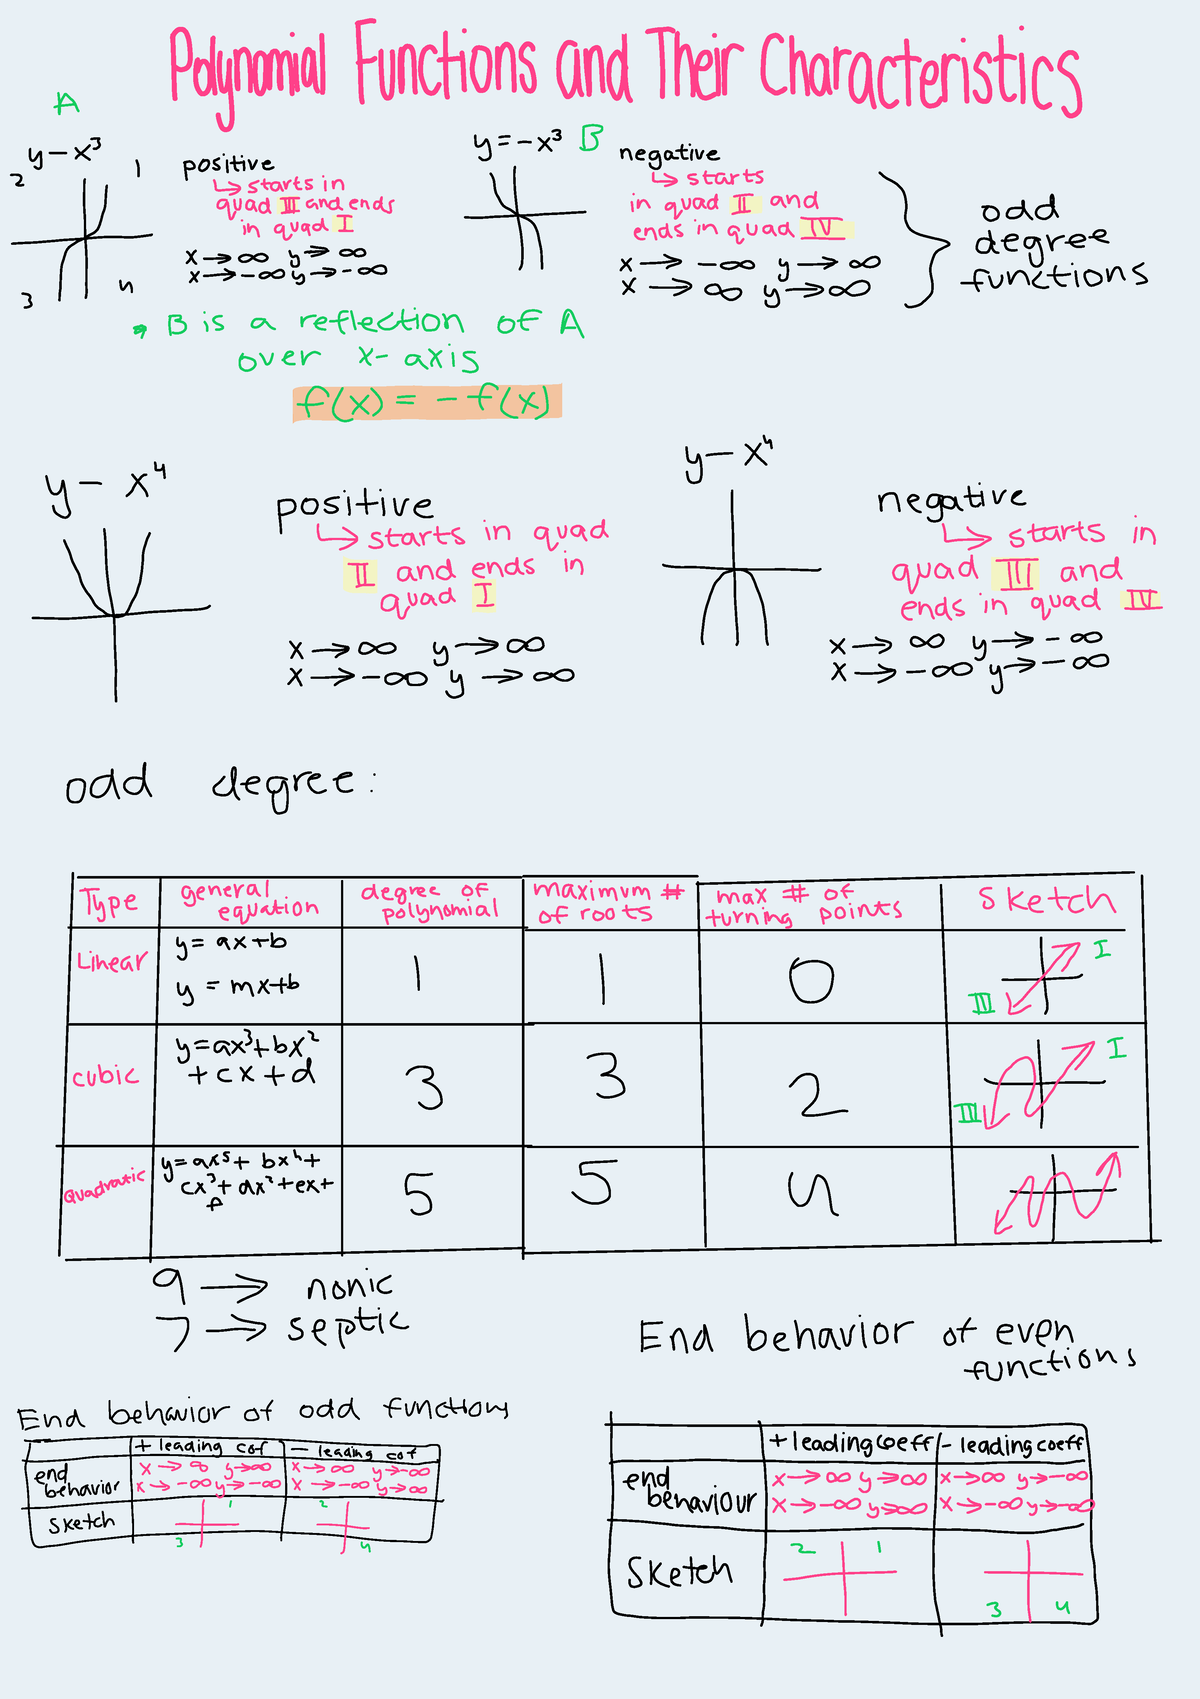 Polynomial Functions and Their Characteristics
A
y - x³
2
1
3
4
positive
↳ starts in
quad III and ends
in quad I
x → ∞ y → ∞
x → -∞ y → -∞
y = -x³ B
negative
↳ starts
in quad II and
ends in quad IV
x → -∞ y → ∞
x → ∞ y → ∞
odd
degree
functions
B is a reflection of A
over x-axis
f(x) = -f(x)
y - x⁴
positive
↳ starts in quad
II and ends in
quad I
x → ∞ y → ∞
x → -∞ y → ∞
y - x⁴
negative
↳ starts in
quad III and
ends in quad IV
x → ∞ y → -∞
x → -∞ y → -∞
odd degree:
Type
general
equation
degree of
polynomial
maximum #
of roots
max # of
turning points
Sketch
Linear
y = ax+b
y = mx+b
1
1
0
I
III
cubic
y=ax³+bx²
+cx+d
3
3
2
I
III
Quadratic
y=ax⁵+ bx⁴+
cx³+ dx²+ex+
f
5
5
4
9 → nonic
7 → septic
End behavior of odd functions
+ leading cof
- leading cof
end
behavior
x → ∞ y → ∞
x → -∞ y → -∞
x → ∞ y → -∞
x → -∞ y → ∞
sketch
1
3
2
4
End behavior of even
functions
+ leading coeff
- leading coeff
end
behaviour
x → ∞ y → ∞
x → -∞ y → ∞
x → ∞ y → -∞
x → -∞ y → -∞
Sketch
2 1
3 4